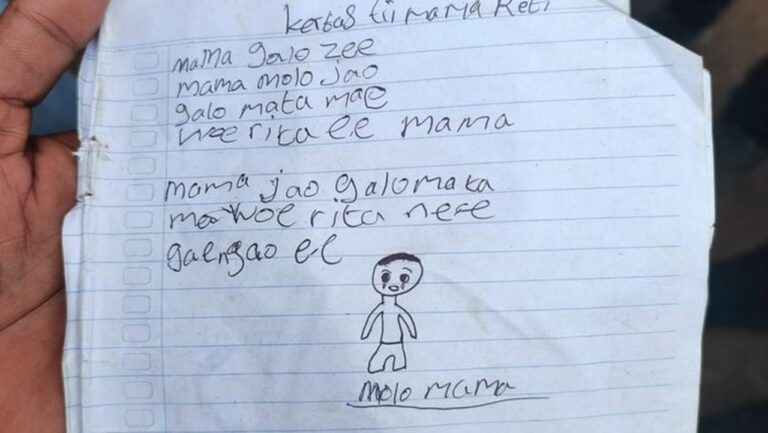 kertas tii mama Reti
mama galo zee
mama molo jao
galo mata mae
woe rita ee mama
mama jao galomata
mae woe rita ne e
gaengao e-e
molo mama